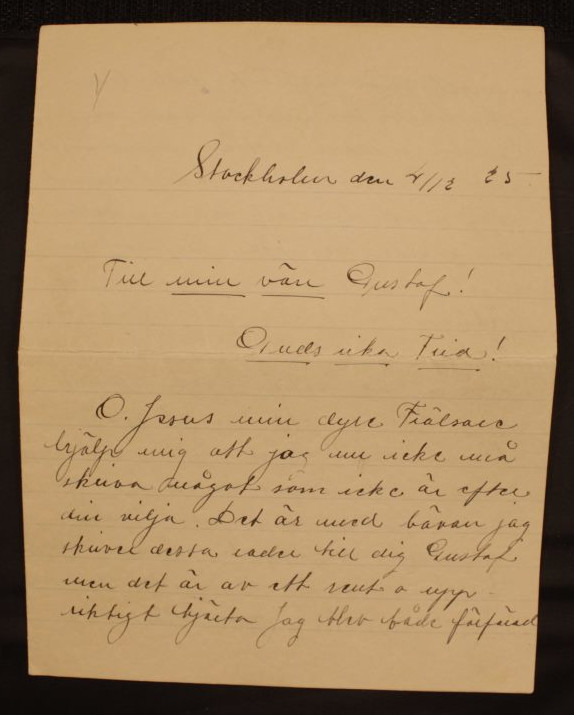 Stockholm den 4/12 25
Till min vän Gustaf!
Guds rika Frid!
O. Jesus min dyre Frälsare
hjälp mig att jag nu icke må
skriva något som icke är efter
din vilja. Det är med bävan jag
skriver dessa rader till dig Gustaf
men det är av ett rent o upp-
riktigt hjärta Jag blev både förfärad